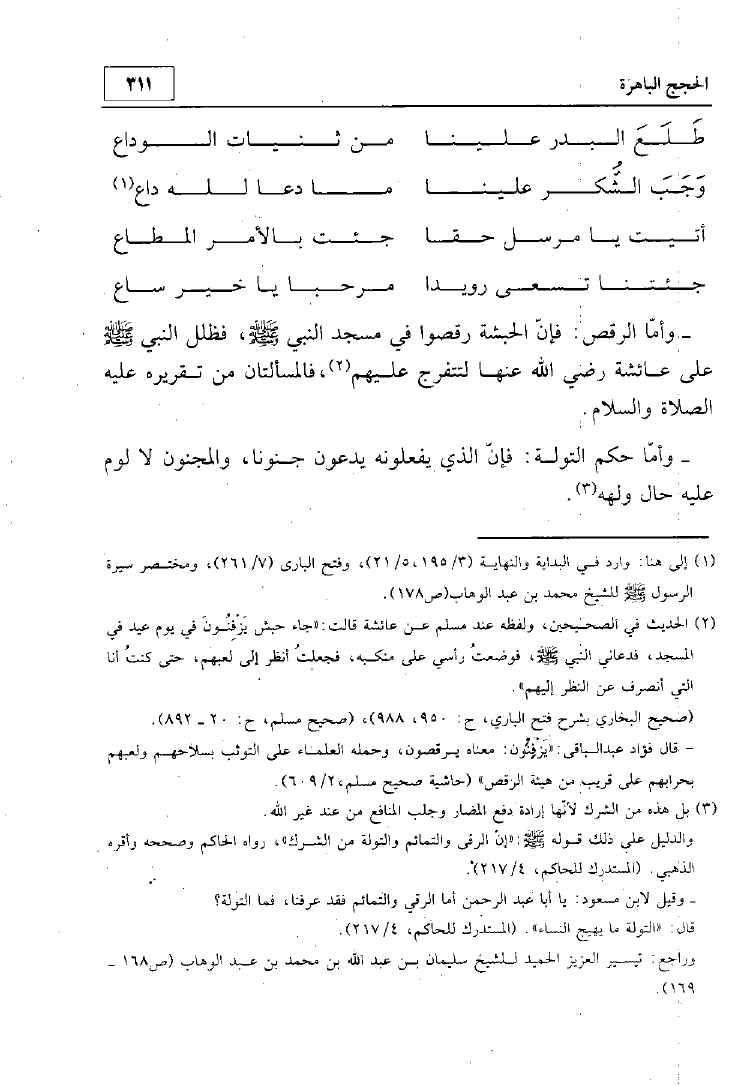 الحجج الباهرة
٣١١
طَلَعَ البدر علينا من ثنيات الوداع
وَجَبَ الشُّكر علينا ما دعا لله داع(١)
أتيت يا مرسل حقا جئت بالأمر المطاع
جئتنا تسعى رويدا مرحبا يا خير ساع
ـ وأمّا الرقص: فإنّ الحبشة رقصوا في مسجد النبي ﷺ، فظلل النبي ﷺ
على عائشة رضي الله عنها لتتفرج عليهم(٢)، فالمسألتان من تقريره عليه
الصلاة والسلام.
ـ وأمّا حكم التولة: فإنّ الذي يفعلونه يدعون جنونا، والمجنون لا لوم
عليه حال ولهه(٣).
(١) إلى هنا: وارد في البداية والنهاية (٣/ ١٩٥، ٥/ ٢١)، وفتح الباري (٧/ ٢٦١)، ومختصر سيرة
الرسول ﷺ للشيخ محمد بن عبد الوهاب(ص١٧٨).
(٢) الحديث في الصحيحين، ولفظه عند مسلم عن عائشة قالت: «جاء حبش يَزْفِنُونَ في يوم عيد في
المسجد، فدعاني النبي ﷺ، فوضعتُ رأسي على منكبه، فجعلتُ أنظر إلى لعبهم، حتى كنتُ أنا
التي أنصرف عن النظر إليهم».
(صحيح البخاري بشرح فتح الباري، ح: ٩٥٠، ٩٨٨)، (صحيح مسلم، ح: ٢٠ ـ ٨٩٢).
- قال فؤاد عبدالباقى: «يَزْفِنُون: معناه يرقصون، وحمله العلماء على التوثب بسلاحهم ولعبهم
بحرابهم على قريب من هيئة الرقص» (حاشية صحيح مسلم، ٢/ ٦٠٩).
(٣) بل هذه من الشرك لأنّها إرادة دفع المضار وجلب المنافع من عند غير الله.
والدليل على ذلك قوله ﷺ: «إنّ الرقى والتمائم والتولة من الشرك»، رواه الحاكم وصححه وأقره
الذهبي. (المستدرك للحاكم، ٤/ ٢١٧).
ـ وقيل لابن مسعود: يا أبا عبد الرحمن أما الرقي والتمائم فقد عرفنا، فما التولة؟
قال: «التولة ما يهيج النساء». (المستدرك للحاكم، ٤/ ٢١٧).
وراجع: تيسير العزيز الحميد للشيخ سليمان بن عبد الله بن محمد بن عبد الوهاب (ص١٦٨ ـ
١٦٩).